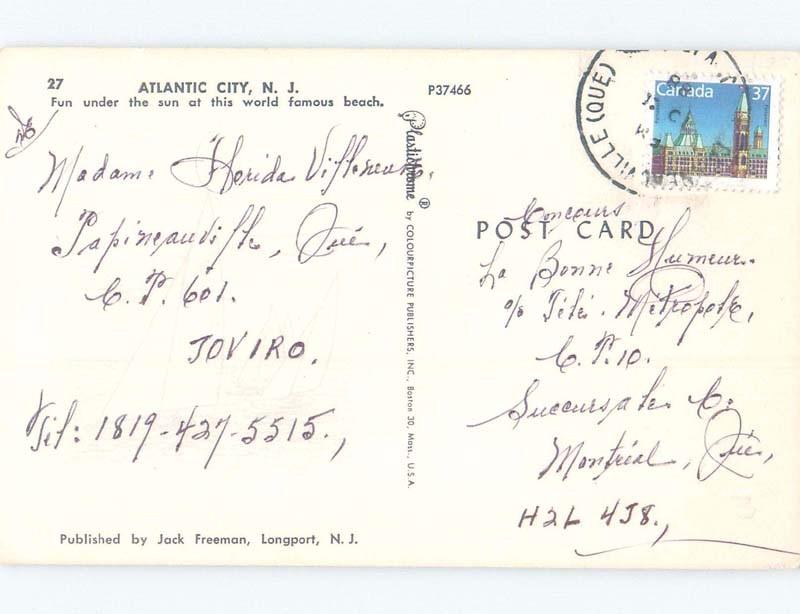 27 ATLANTIC CITY, N. J.
Fun under the sun at this world famous beach.
P37466
Madame Florida Villeneuve.
Papineauville, Qué,
C. P. 601.
JOV1RO.
Tél: 1819-427-5515.,
Published by Jack Freeman, Longport, N. J.
Plastichrome ® by COLOURPICTURE PUBLISHERS, INC., Boston 30, Mass., U.S.A.
VILLE (QUE)
Canada 37
POST CARD
Concours
La Bonne Humeur.
c/o Télé. Métropole,
C. P. 10.
Succursale C.
Montréal, Qué,
H2L 4J8.,